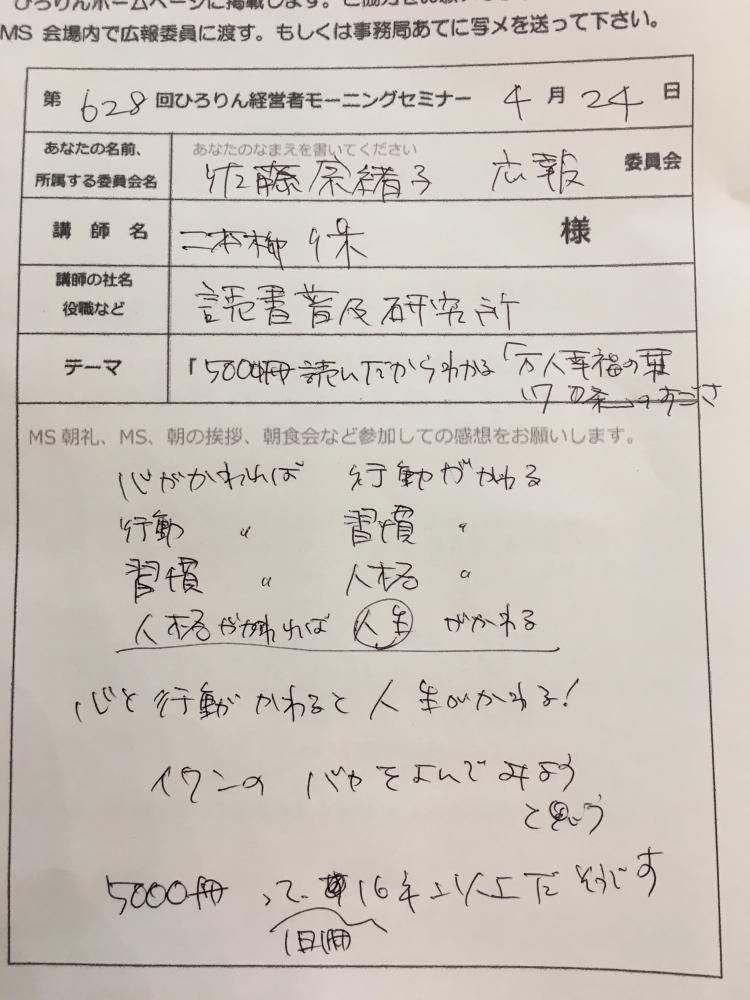 MS 会場内で広報委員に渡す。もしくは事務局あてに写メを送って下さい。
第 628 回ひろりん経営者モーニングセミナー 4 月 24 日
あなたの名前、
所属する委員会名
あなたのなまえを書いてください
佐藤奈緒子 広報 委員会
講師名 二本柳 保 様
講師の社名
役職など
読書普及研究所
テーマ 「5000冊読んだからわかる「万人幸福の栞
17カ条」のすごさ
MS 朝礼、MS、朝の挨拶、朝食会など参加しての感想をお願いします。
心がかわれば 行動がかわる
行動 〃 習慣 〃
習慣 〃 人格 〃
人格がかわれば 人生 がかわる
心と行動がかわると人生がかわる!
イワンの バカをよんでみよう
と思う
5000冊 って 16年以上だそうです
1日1冊